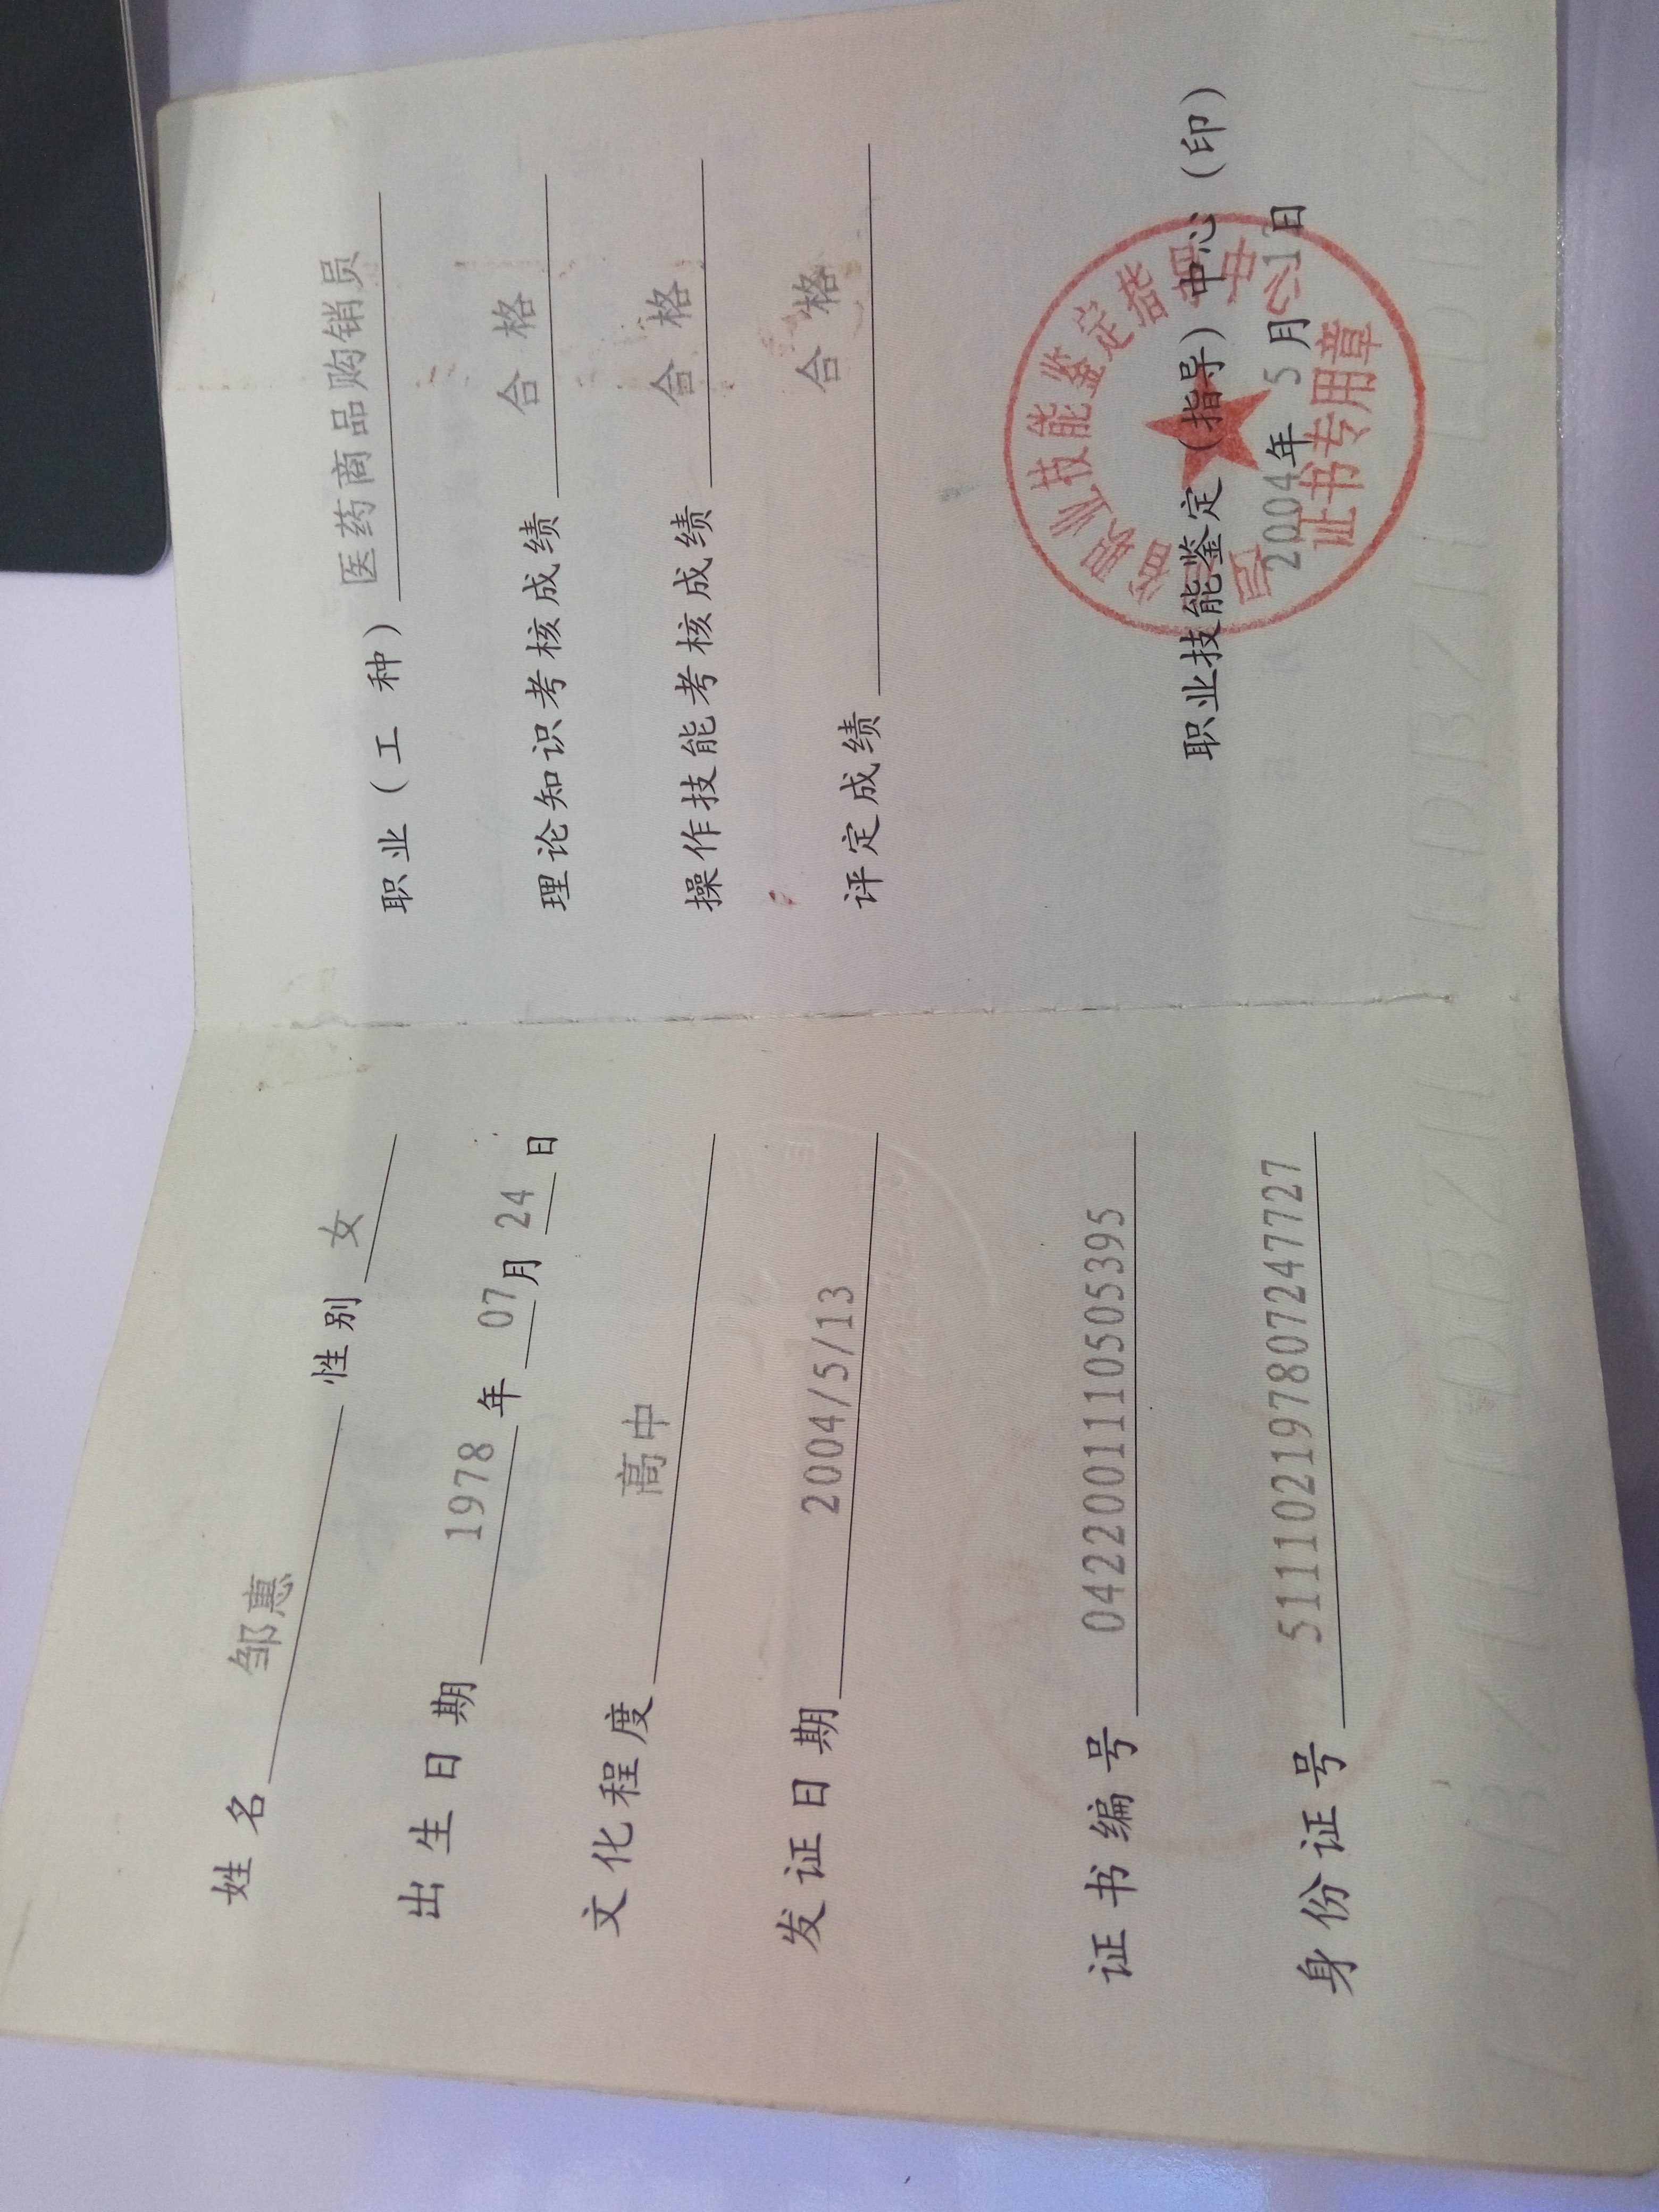 姓 名 邹惠 性别 女
出生日期 1978 年 07 月 24 日
文化程度 高中
发证日期 2004/5/13
证书编号 0422001110505395
身份证号 511102197807247727
职业（工 种） 医药商品购销员
理论知识考核成绩 合 格
操作技能考核成绩 合 格
评定成绩 合 格
职业技能鉴定（指导）中心（印）
2004年 5 月 日
省职业技能鉴定指导中心
证书专用章